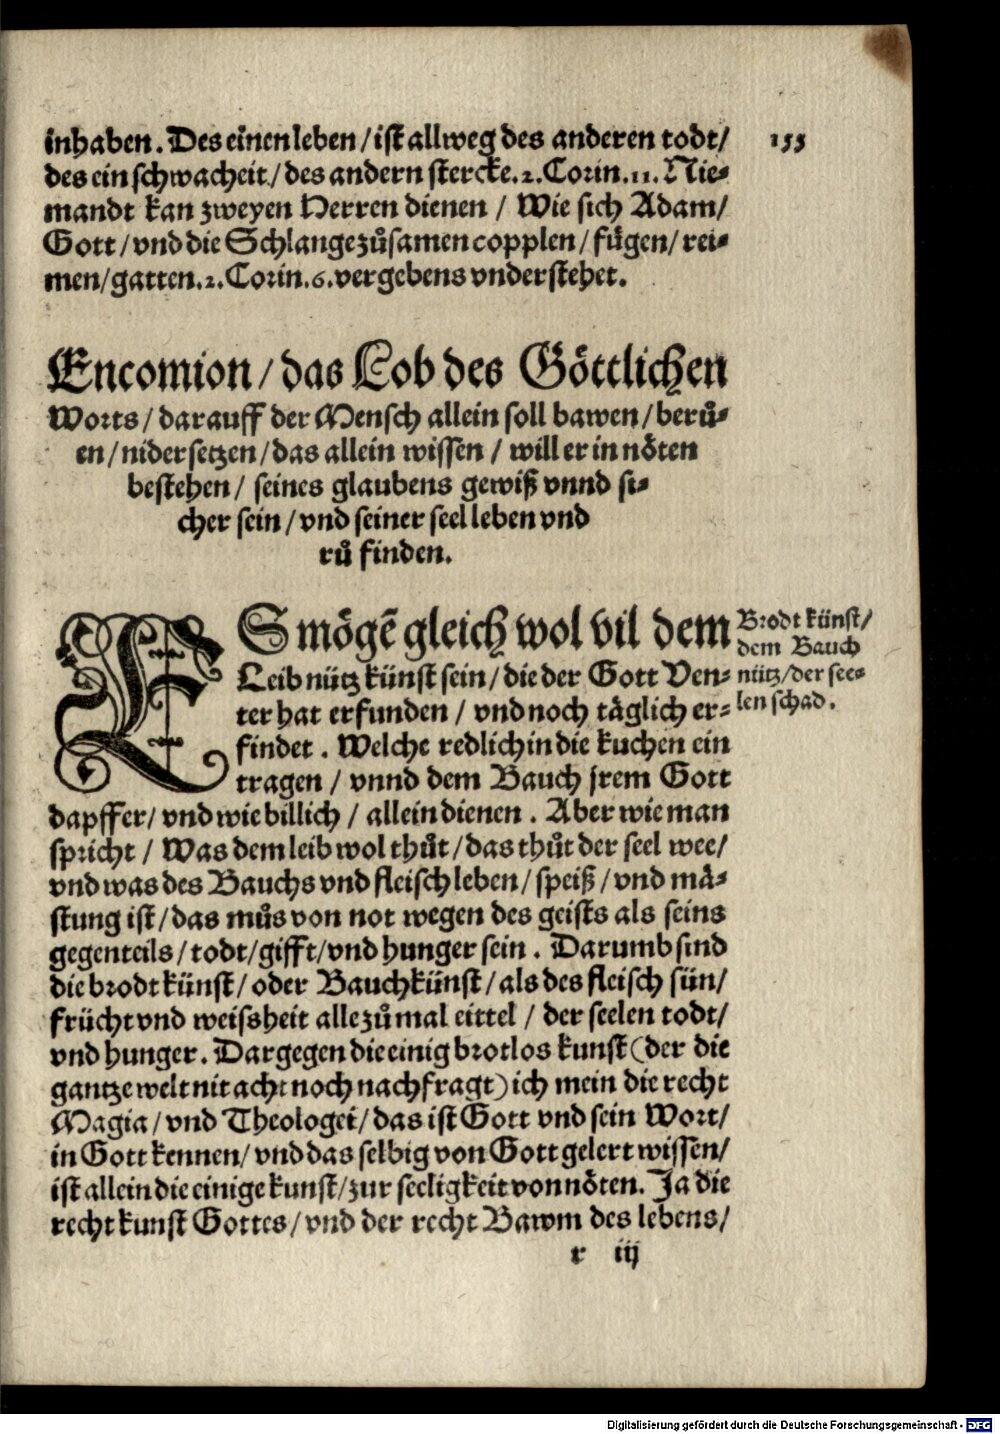 inhaben. Des einen leben / ist allweg des anderen todt / 155
des ein schwacheit / des andern stercke. 2. Corin. 11. Nie-
mandt kan zweyen Herren dienen / Wie sich Adam /
Gott / vnd die Schlange zůsamen copplen / fügen / rei-
men / gatten. 2. Corin. 6. vergebens vnderstehet.
Encomion / das Lob des Göttlichen
Worts / darauff der Mensch allein soll bawen / berů-
en / nidersetzen / das allein wissen / will er in nöten
bestehen / seines glaubens gewiß vnnd si-
cher sein / vnd seiner seel leben vnd
rů finden.
ES mögẽ gleich wol vil dem
Leib nütz künst sein / die der Gott Ven-
ter hat erfunden / vnd noch täglich er-
findet. Welche redlich in die kuchen ein
tragen / vnnd dem Bauch jrem Gott
dapffer / vnd wie billich / allein dienen. Aber wie man
spricht / Was dem leib wol thůt / das thůt der seel wee /
vnd was des Bauchs vnd fleisch leben / speiß / vnd mä-
stung ist / das můs von not wegen des geists als seins
gegenteils / todt / gifft / vnd hunger sein. Darumb sind
die brodt künst / oder Bauchkünst / als des fleisch sün /
frücht vnd weissheit alle zůmal eittel / der seelen todt /
vnd hunger. Dargegen die einig brotlos kunst (der die
gantze welt nit acht noch nachfragt) ich mein die recht
Magia / vnd Theologei / das ist Gott vnd sein Wort /
in Gott kennen / vnd das selbig von Gott gelert wissen /
ist allein die einige kunst / zur seeligkeit von nöten. Ja die
recht kunst Gottes / vnd der recht Bawm des lebens /
r iij
Brodt künst /
dem Bauch
nütz / der see-
len schad.
Digitalisierung gefördert durch die Deutsche Forschungsgemeinschaft - DFG